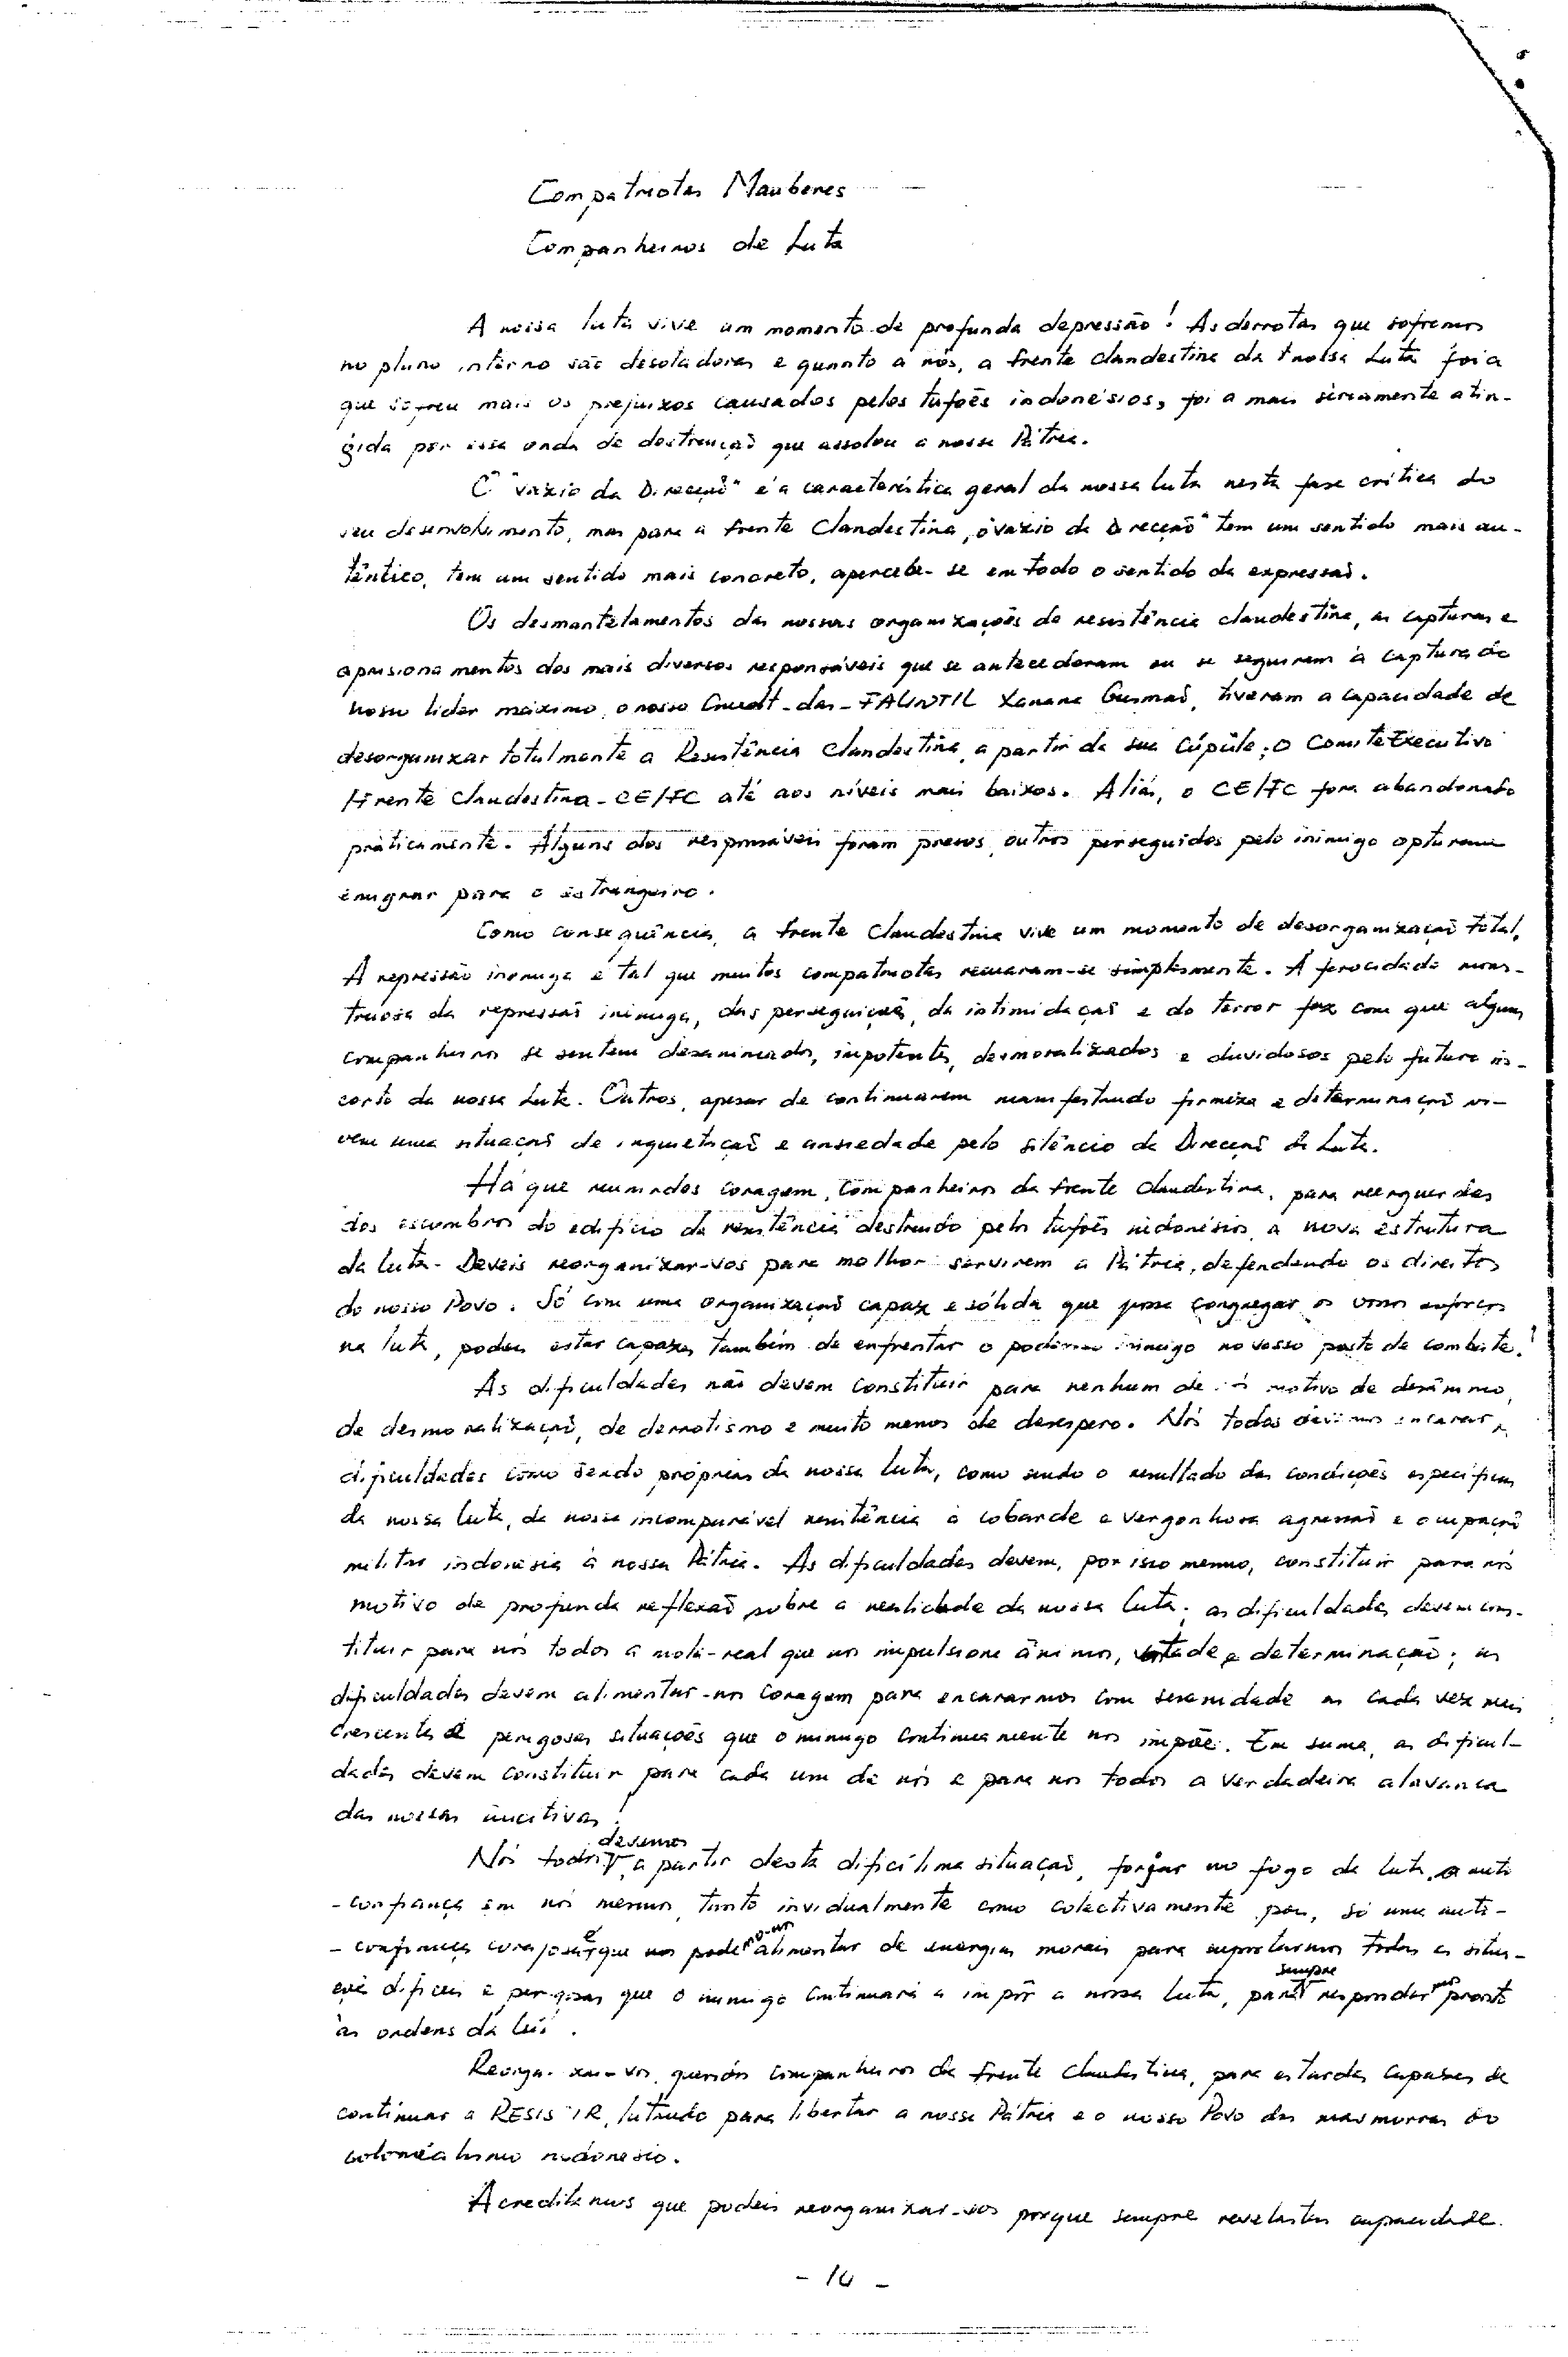 Compatriotas Mauberes
Companheiros de Luta
A nossa luta vive um momento de profunda depressão! As derrotas que sofremos
no plano interno são desoladoras e quanto a nós, a frente clandestina da nossa Luta foi a
que sofreu mais os prejuizos causados pelos tufões indonésios, foi a mais seriamente atin-
gida por essa onda de destruição que assolou a nossa Pátria.
O "vazio da Direcção" é a característica geral da nossa luta nesta fase crítica do
seu desenvolvimento, mas para a frente Clandestina, o vazio da Direcção" tem um sentido mais au-
têntico, tem um sentido mais concreto, apercebe-se em todo o sentido da expressão.
Os desmantelamentos das nossas organizações de resistência clandestina, as capturas e
aprisionamentos dos mais diversos responsáveis que se antecederam ou se seguiram à captura do
nosso lider máximo, o nosso Cmdt-das-FALINTIL Xanana Gusmão, tiveram a capacidade de
desorganizar totalmente a Resistência Clandestina, a partir da sua Cúpula; o Comité Executivo
/Frente Clandestina-CE/FC até aos níveis mais baixos. Aliás, o CE/FC fora abandonado
práticamente. Alguns dos responsáveis foram presos, outros perseguidos pelo inimigo optaram
emigrar para o estrangeiro.
Como consequência, a frente Clandestina vive um momento de desorganização total.
A repressão inimiga é tal que muitos compatriotas recuaram-se simplesmente. A ferocidade mons-
truosa da repressão inimiga, das perseguições, da intimidação e do terror faz com que alguns
companheiros se sentem desanimados, impotentes, desmoralizados e duvidosos pelo futuro in-
certo da nossa Luta. Outros, apesar de continuarem manifestando firmeza e determinação vi-
vem uma situação de inquietação e ansiedade pelo silêncio da Direcção da Luta.
Há que reunirdes coragem, companheiros da frente clandestina, para reerguerdes
dos escombros do edifício da resistência destruido pelos tufões indonésios, a nova estrutura
da luta. Deveis reorganizar-vos para melhor servirem a Pátria, defendendo os direitos
do nosso Povo. Só com uma organização capaz e sólida que possa congregar os vossos esforços
na luta, podeis estar capazes também de enfrentar o poderoso inimigo no vosso posto de combate!
As dificuldades não devem constituir para nenhum de nós motivo de desânimo,
de desmoralização, de derrotismo e muito menos de desespero. Nós todos devemos encarar as
dificuldades como sendo próprias da nossa luta, como sendo o resultado das condições específicas
da nossa luta, da nossa incomparável resistência à cobarde e vergonhosa agressão e ocupação
militar indonésia à nossa Pátria. As dificuldades devem, por isso mesmo, constituir para nós
motivo de profunda reflexão sobre a realidade da nossa luta; as dificuldades devem cons-
tituir para nós todos a mola-real que nos impulsione ânimos, vontade e determinação; as
dificuldades devem alimentar-nos coragem para encararmos com serenidade as cada vez mais
crescentes e perigosas situações que o inimigo continuamente nos impõe. Em suma, as dificul-
dades devem constituir para cada um de nós e para nós todos a verdadeira alavanca
das nossas iniciativas!
Nós todos devemos, a partir desta dificílima situação, forjar no fogo da luta, a auto
-confiança em nós mesmos, tanto invidualmente como colectivamente pois, só uma auto-
-confiança corajosa é que nos pode alimentar de energias morais para suportarmos todas as situa-
ções dificeis e perigosas que o inimigo continuará a impôr a nossa luta, para sempre respondermos pronto
às ordens da luta.
Reorganizai-vos, queridos companheiros da frente clandestina, para estardes capazes de
continuar a RESISTIR, lutando para libertar a nossa Pátria e o nosso Povo das masmorras do
colonialismo indonésio.
Acreditamos que podeis reorganizar-vos porque sempre revelastes capacidade.